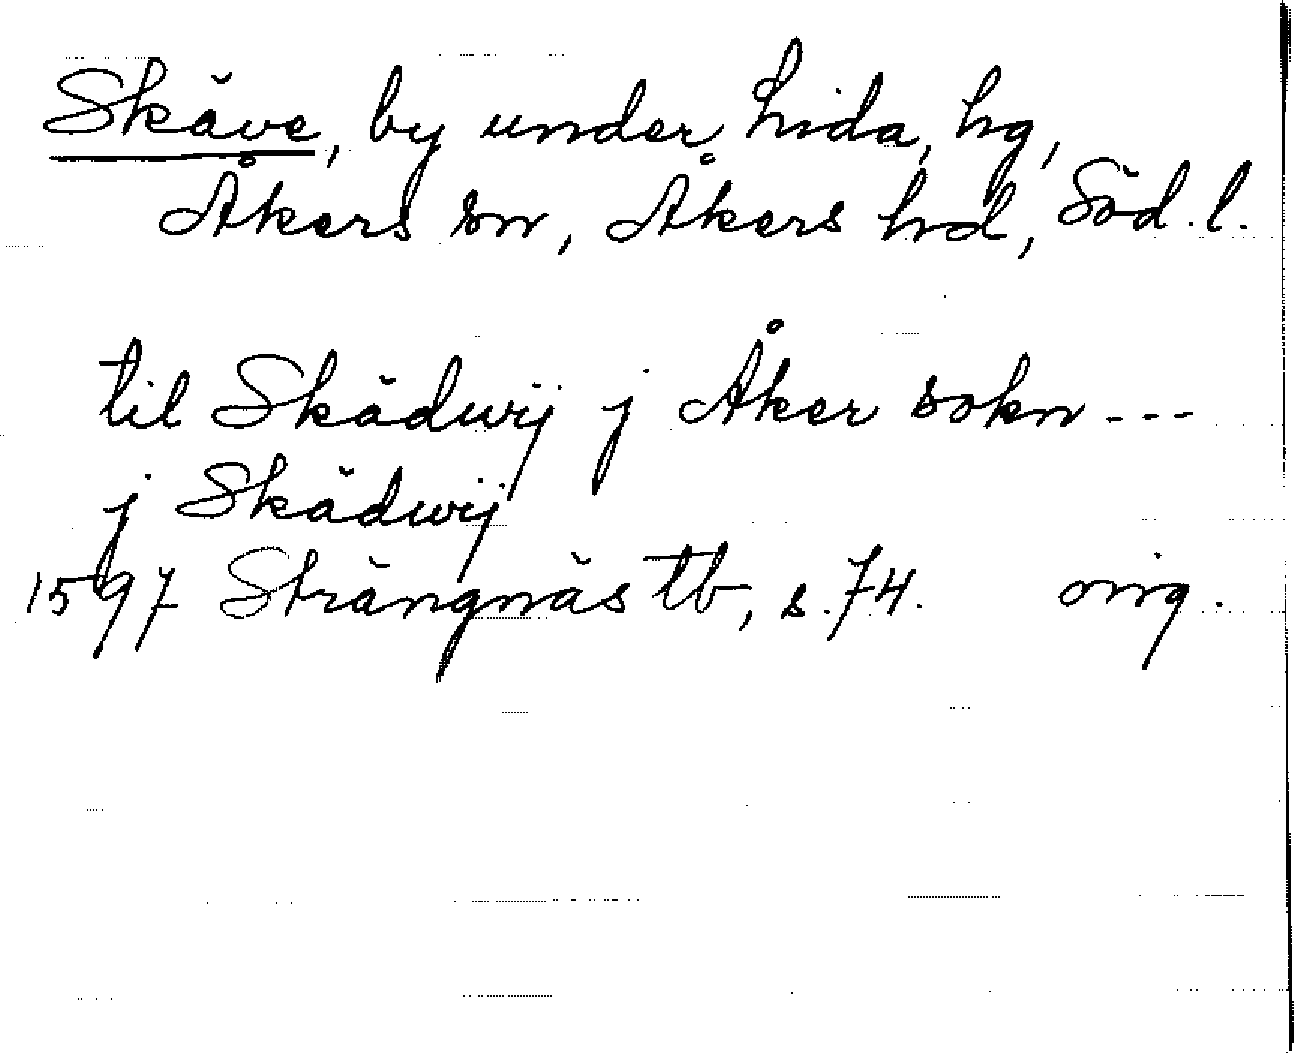 Skäve, by under Lida, hg,
Åkers sn, Åkers hd, Söd. l.
til Skädwij j Åker sokn ---
j Skädwij
1597 Strängnäs tb, s. 74. orig.